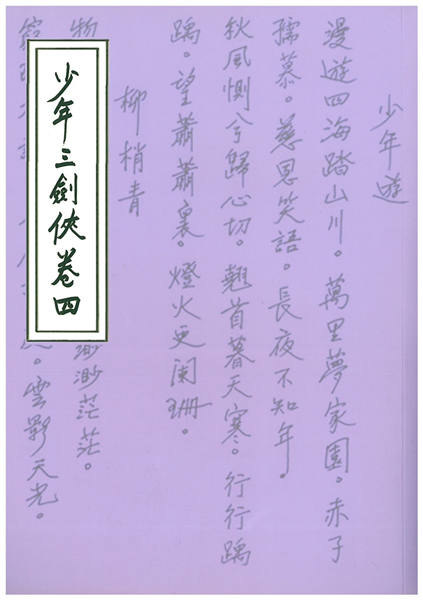 少年遊
漫遊四海踏山川。萬里夢家園。赤子
孺慕。慈恩笑語。長夜不知年。
秋風惻兮歸心切。翹首暮天寒。行行踽
踽。望蕭蕭裏。燈火更闌珊。
柳梢青
物
渺渺茫茫。
雲影天光。
少年三劍俠卷四